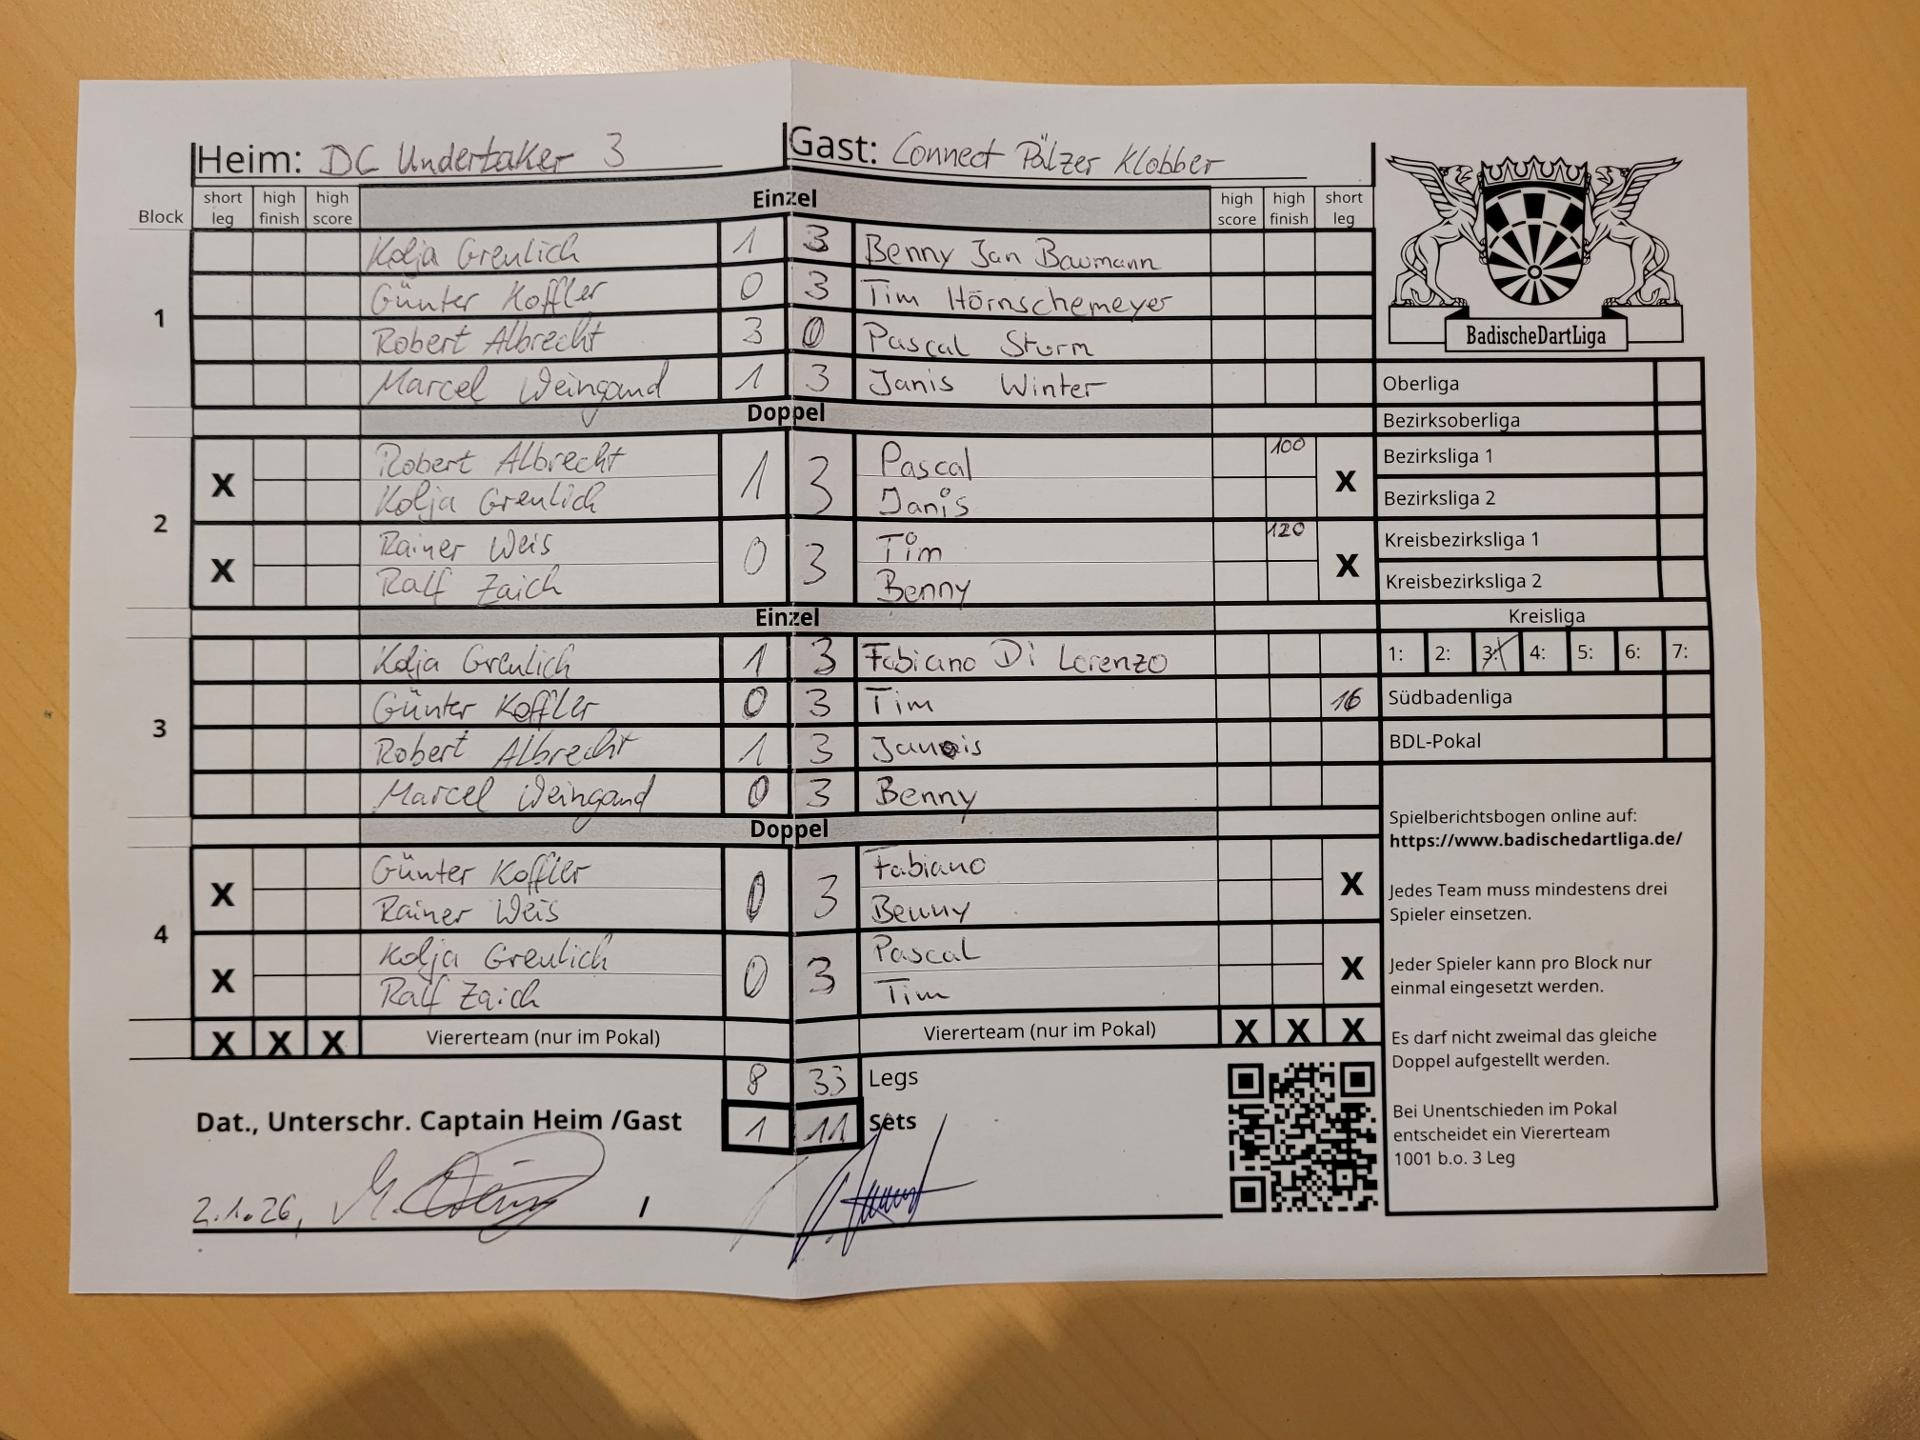 Heim: DC Undertaker 3 Gast: Connect Pälzer Klobber
Block short leg high finish high score Einzel high score high finish short leg
1
Kolja Greulich 1 3 Benny Jan Baumann
Günter Koffler 0 3 Tim Hörnschemeyer
Robert Albrecht 3 0 Pascal Sturm
Marcel Weingand 1 3 Janis Winter
Doppel
2
X Robert Albrecht 1 3 Pascal 100 X
Kolja Greulich Janis
X Rainer Weis 0 3 Tim 120 X
Ralf Zaich Benny
Einzel
3
Kolja Greulich 1 3 Fabiano Di Lorenzo
Günter Koffler 0 3 Tim 16
Robert Albrecht 1 3 Janis
Marcel Weingand 0 3 Benny
Doppel
4
X Günter Koffler 0 3 Fabiano X
Rainer Weis Benny
X Kolja Greulich 0 3 Pascal X
Ralf Zaich Tim
X X X Viererteam (nur im Pokal) Viererteam (nur im Pokal) X X X
8 33 Legs
Dat., Unterschr. Captain Heim /Gast 1 11 Sets
2.1.26, /
BadischeDartLiga
Oberliga
Bezirksoberliga
Bezirksliga 1
Bezirksliga 2
Kreisbezirksliga 1
Kreisbezirksliga 2
Kreisliga
1: 2: 3: 4: 5: 6: 7:
Südbadenliga
BDL-Pokal
Spielberichtsbogen online auf:
https://www.badischedartliga.de/
Jedes Team muss mindestens drei
Spieler einsetzen.
Jeder Spieler kann pro Block nur
einmal eingesetzt werden.
Es darf nicht zweimal das gleiche
Doppel aufgestellt werden.
Bei Unentschieden im Pokal
entscheidet ein Viererteam
1001 b.o. 3 Leg